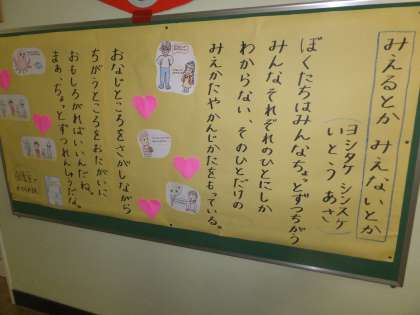 みえるとか みえないとか
ヨシタケ シンスケ
いとう あさ
ぼくたちはみんなちょっとずつちがう
みんなそれぞれのひとにしか
わからない、そのひとだけの
みえかたやかんじかたをもっている。
おなじところをさがしながら
ちがうところをおたがいに
おもしろがればいいんだね。
まぁ、ちょっとずつれんしゅうだな。